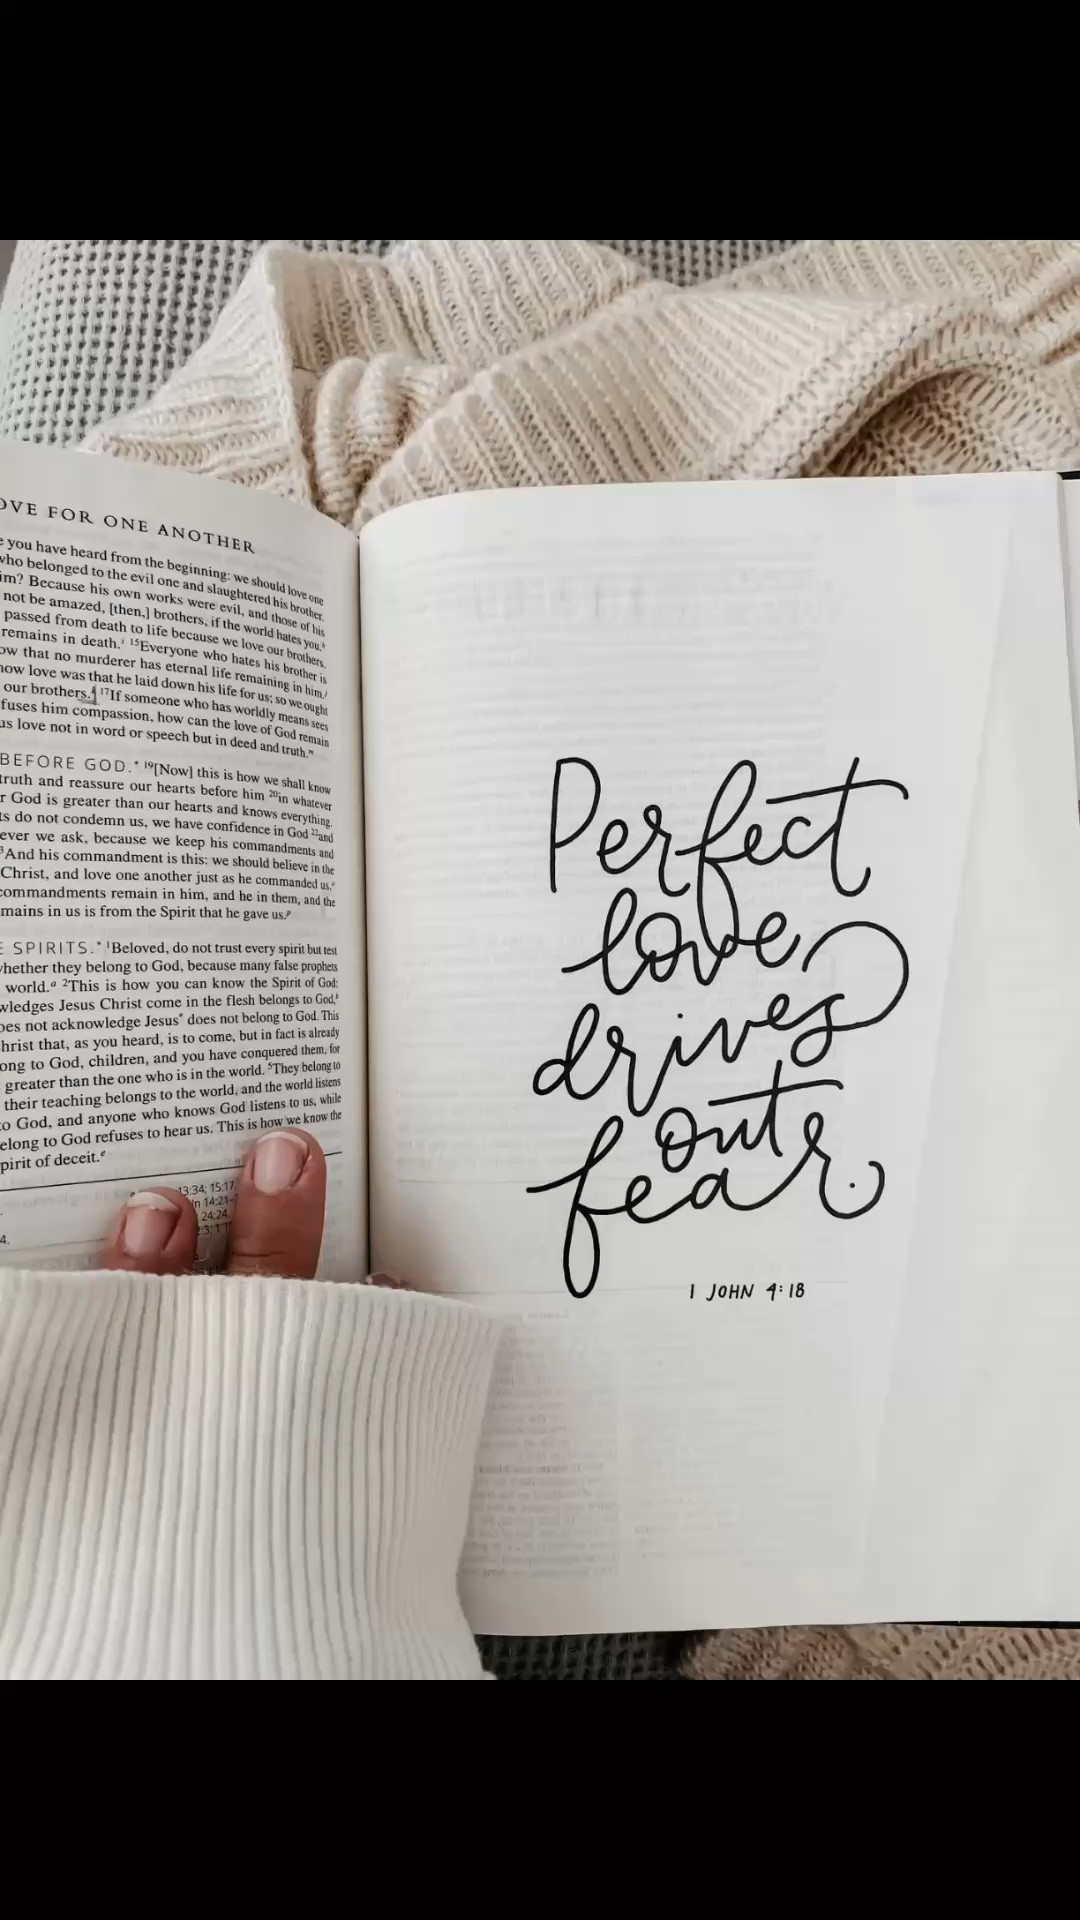 LOVE FOR ONE ANOTHER
you have heard from the beginning: we should love one
who belonged to the evil one and slaughtered his brother.
him? Because his own works were evil, and those of his
not be amazed, [then,] brothers, if the world hates you.h
passed from death to life because we love our brothers.
remains in death.i 15Everyone who hates his brother is
that no murderer has eternal life remaining in him.j
love was that he laid down his life for us; so we ought
our brothers.k 17If someone who has worldly means sees
fuses him compassion, how can the love of God remain
us love not in word or speech but in deed and truth.m
BEFORE GOD.* 19[Now] this is how we shall know
truth and reassure our hearts before him 20in whatever
God is greater than our hearts and knows everything.
do not condemn us, we have confidence in God 22and
ever we ask, because we keep his commandments and
And his commandment is this: we should believe in the
Christ, and love one another just as he commanded us.o
commandments remain in him, and he in them, and the
mains in us is from the Spirit that he gave us.p
SPIRITS.* 1Beloved, do not trust every spirit but test
whether they belong to God, because many false prophets
world.a 2This is how you can know the Spirit of God:
wledges Jesus Christ come in the flesh belongs to God,b
oes not acknowledge Jesus* does not belong to God. This
hrist that, as you heard, is to come, but in fact is already
ong to God, children, and you have conquered them, for
greater than the one who is in the world. 5They belong to
their teaching belongs to the world, and the world listens
to God, and anyone who knows God listens to us, while
elong to God refuses to hear us. This is how we know the
pirit of deceit.e
13:34; 15:17.
24:24.
4.
Perfect
love
drives
out
fear.
1 JOHN 4:18